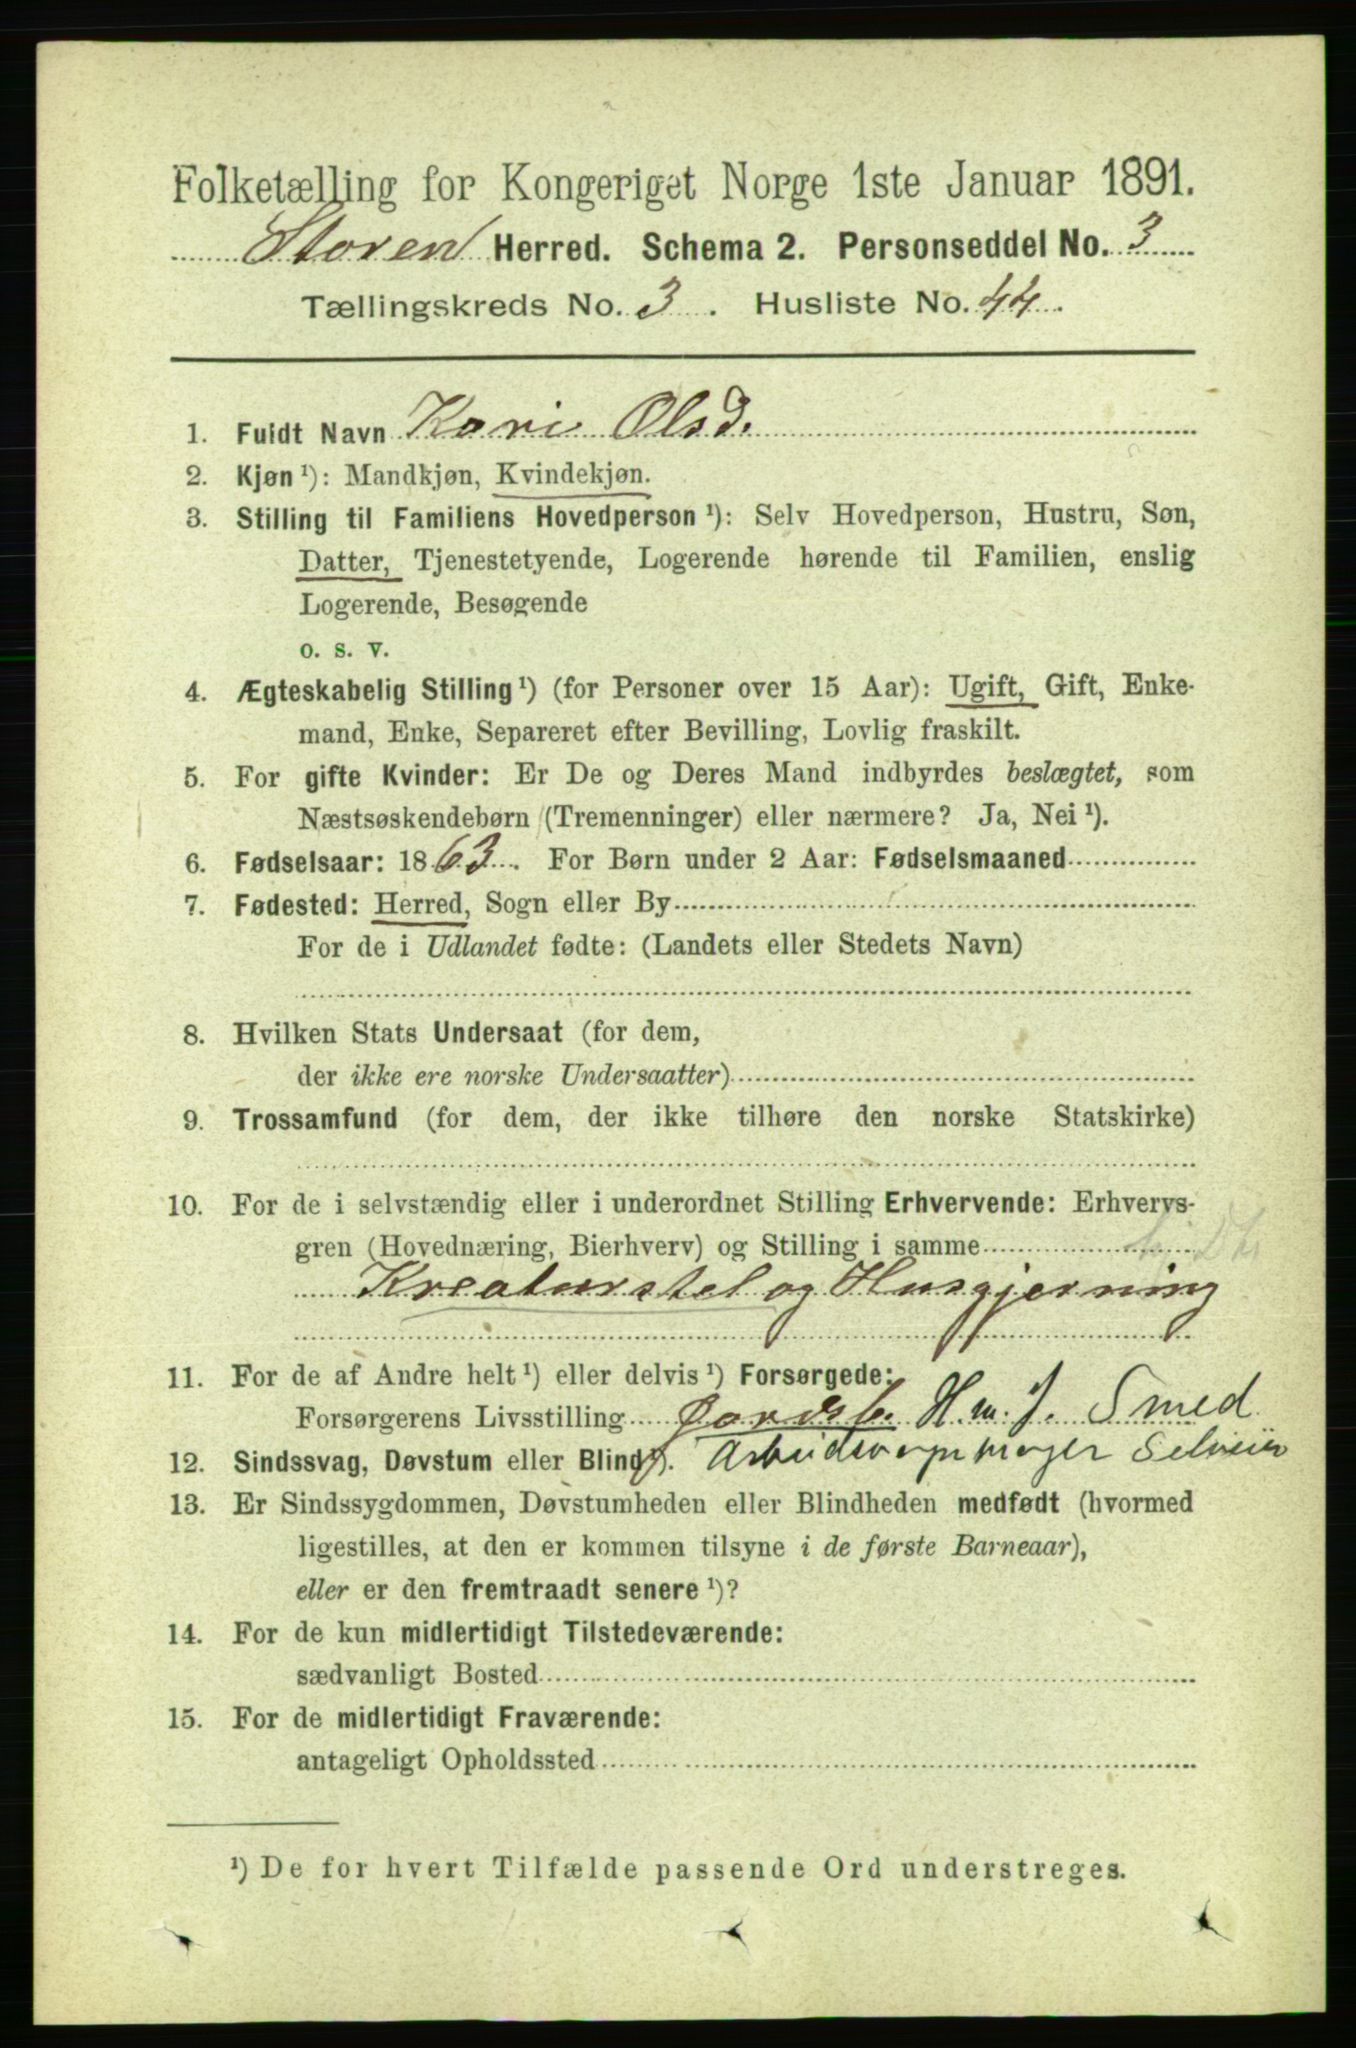 Folketælling for Kongeriget Norge 1ste Januar 1891.
Støren Herred. Schema 2. Personseddel No. 3
Tællingskreds No. 3. Husliste No. 44.
1. Fuldt Navn Kari Olsd.
2. Kjøn ¹): Mandkjøn, Kvindekjøn.
3. Stilling til Familiens Hovedperson ¹): Selv Hovedperson, Hustru, Søn,
Datter, Tjenestetyende, Logerende hørende til Familien, enslig
Logerende, Besøgende
o. s. v.
4. Ægteskabelig Stilling ¹) (for Personer over 15 Aar): Ugift, Gift, Enke-
mand, Enke, Separeret efter Bevilling, Lovlig fraskilt.
5. For gifte Kvinder: Er De og Deres Mand indbyrdes beslægtet, som
Næstsøskendebørn (Tremenninger) eller nærmere? Ja, Nei ¹).
6. Fødselsaar: 1863. For Børn under 2 Aar: Fødselsmaaned
7. Fødested: Herred, Sogn eller By
For de i Udlandet fødte: (Landets eller Stedets Navn)
8. Hvilken Stats Undersaat (for dem,
der ikke ere norske Undersaatter)
9. Trossamfund (for dem, der ikke tilhøre den norske Statskirke)
10. For de i selvstændig eller i underordnet Stilling Erhvervende: Erhvervs-
gren (Hovednæring, Bierhverv) og Stilling i samme
Kreaturstel og Husgjerning
11. For de af Andre helt ¹) eller delvis ¹) Forsørgede:
Forsørgerens Livsstilling H. m. J. Smed
12. Sindssvag, Døvstum eller Blind ¹).
13. Er Sindssygdommen, Døvstumheden eller Blindheden medfødt (hvormed
ligestilles, at den er kommen tilsyne i de første Barneaar),
eller er den fremtraadt senere ¹)?
14. For de kun midlertidigt Tilstedeværende:
sædvanligt Bosted
15. For de midlertidigt Fraværende:
antageligt Opholdssted
¹) De for hvert Tilfælde passende Ord understreges.